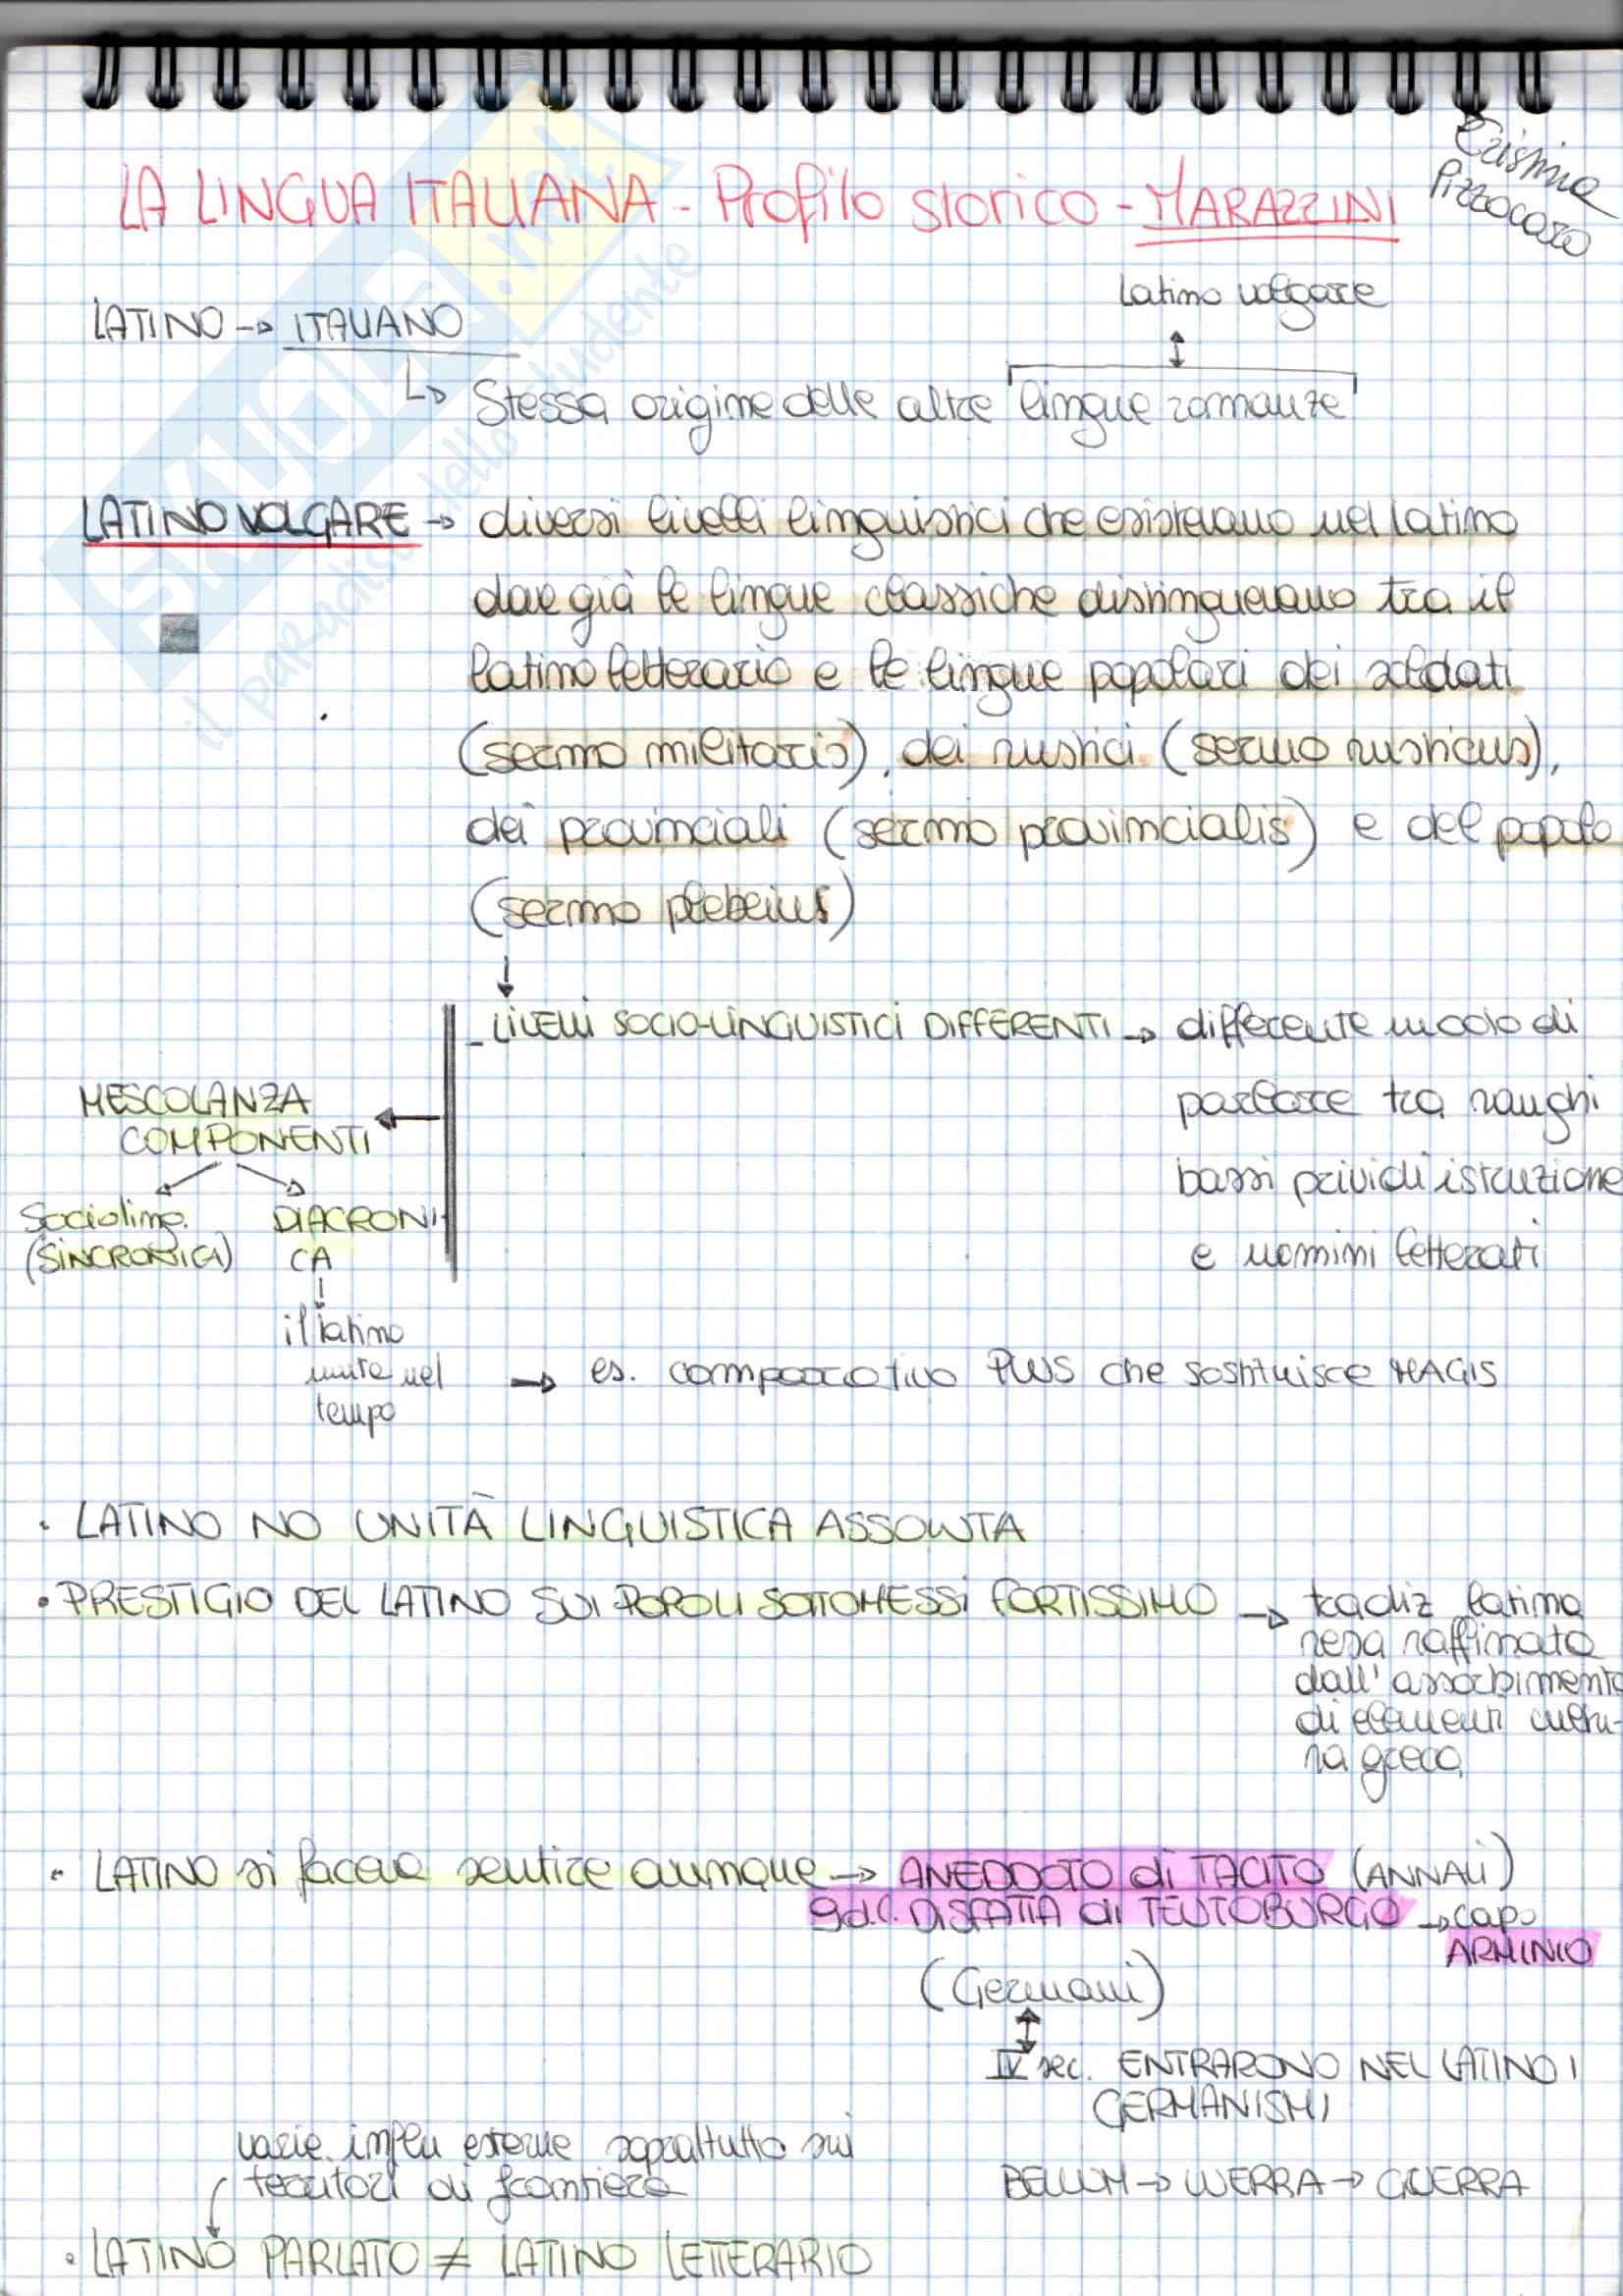 Cristina
Pizzocaro
LA LINGUA ITALIANA - Profilo storico - MARAZZINI
Latino volgare
LATINO → ITALIANO
↳ Stessa origine delle altre lingue romanze
LATINO VOLGARE → diversi livelli linguistici che esistevano nel latino
dove già le lingue classiche distinguevano tra il
latino letterario e le lingue popolari dei soldati
(sermo militaris), dei rustici (sermo rusticus),
dei provinciali (sermo provincialis) e del popolo
(sermo plebeius)
↓
- LIVELLI SOCIO-LINGUISTICI DIFFERENTI → differente modo di
parlare tra ranghi
bassi privi di istruzione
e uomini letterati
MESCOLANZA
COMPONENTI
Socioling. DIACRONI-
(SINCRONICA) CA
il latino
muta nel → es. comparativo PLUS che sostituisce MAGIS
tempo
• LATINO NO UNITÀ LINGUISTICA ASSOLUTA
• PRESTIGIO DEL LATINO SUI POPOLI SOTTOMESSI FORTISSIMO → tradiz latina
resa raffinata
dall'assorbimento
di elementi cultu-
ra greca
• LATINO si faceva sentire ovunque → ANEDDOTO di TACITO (ANNALI)
9 d.C. DISFATTA di TEUTOBURGO → capo
ARMINIO
(Germani)
IV sec. ENTRARONO NEL LATINO I
GERMANISMI
varie influ esterne soprattutto sui
territori di frontiera
BELLUM → WERRA → GUERRA
• LATINO PARLATO ≠ LATINO LETTERARIO
SKUOLA.net
il paradiso dello studente